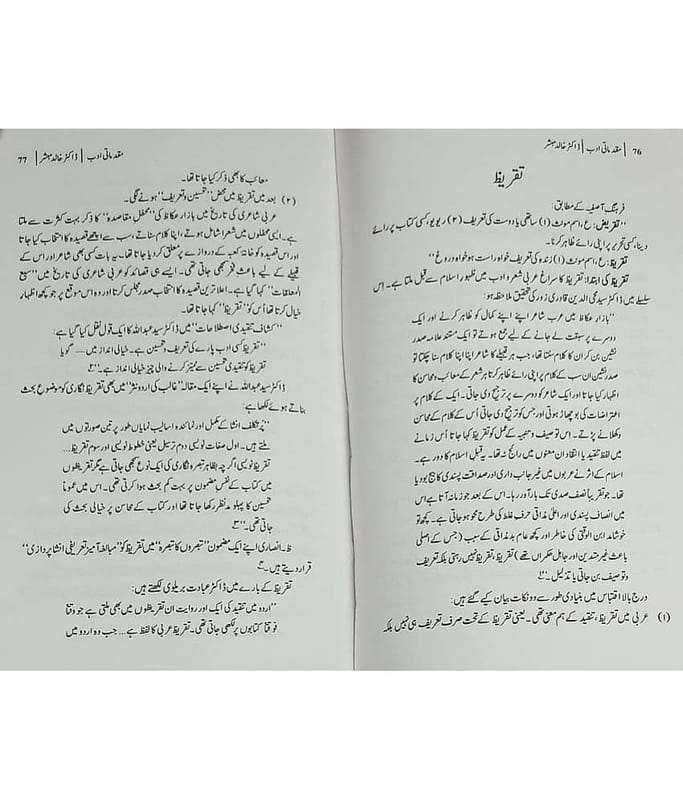 76 | مقدماتی ادب | ڈاکٹر خالد مبشر
تقریظ
فرہنگِ آصفیہ کے مطابق:
”تقریض: ع، اسم مونث (۱) ساتھی یا دوست کی تعریف (۲) ریویو، کسی کتاب پر رائے
دینا، کسی تحریر پر اپنی رائے ظاہر کرنا۔
تقریظ: ع، اسم مونث (۱) زندہ کی تعریف خواہ راست ہو خواہ دروغ“
تقریظ کی ابتدا: تقریظ کا سراغ عربی شعر و ادب میں ظہورِ اسلام سے قبل ملتا ہے۔ اس
سلسلے میں ڈاکٹر سید محی الدین قادری زور کی تحقیق ملاحظہ ہو:
”بازارِ عکاظ میں عرب شاعر اپنے اپنے کمال کو ظاہر کرنے اور ایک
دوسرے پر سبقت لے جانے کے لیے جمع ہوتے تو ایک مستند علامہ صدر
نشین بن کر ان کا کلام سنتا تھا، جب ہر قبیلے کا شاعر اپنا اپنا کلام سنا چکتا تو
صدر نشین ان سب کے کلام پر اپنی رائے ظاہر کرتا ہر شعر کے معائب و محاسن کا
اظہار کیا جاتا اور ایک شاعر کو دوسرے پر ترجیح دی جاتی۔ ایک کے کلام پر
اعتراضات کی بوچھاڑ ہوتی اور جس کو ترجیح دی جاتی اُس کے کلام کے محاسن
دکھلانے پڑتے۔ اس توصیف و تنبیہہ کے عمل کو تقریظ کہا جاتا اُس زمانے
میں لفظ تنقید یا انتقاد ان معنوں میں رائج نہ تھا۔ یہ قبلِ اسلام کا دور ہے۔
اسلام کے اثر نے عربوں میں غیر جانب داری اور صداقت پسندی کا بیج بو دیا
تھا۔ جو تقریباً نصف صدی تک بار آور رہا۔ اس کے بعد جو زمانہ آتا ہے اس
میں انصاف پسندی اور اعلیٰ مذاقی حرفِ غلط کی طرح محو ہو جاتی ہے۔ کچھ تو
خوشامد ابن الوقتی کی خاطر اور کچھ عام بد مذاقی کے سبب (جس کے اصلی
باعث غیر متدین اور جاہل حکمراں تھے) تقریظ، تقریظ نہیں رہتی بلکہ تعریف
و توصیف بن جاتی یا تذلیل۔“
درج بالا اقتباس میں بنیادی طور سے دو نکات بیان کیے گئے ہیں:
(۱) عربی میں تقریظ، تنقید کے ہم معنی تھی۔ یعنی تقریظ کے تحت صرف تعریف ہی نہیں بلکہ
مقدماتی ادب | ڈاکٹر خالد مبشر | 77
معائب کا بھی ذکر کیا جاتا تھا۔
(۲) بعد میں تقریظ میں محض ”تحسین و تعریف“ ہونے لگی۔
عربی شاعری کی تاریخ میں بازارِ عکاظ کی ”محفلِ مقاصدہ“ کا ذکر بہت کثرت سے ملتا
ہے۔ ایسی محفلوں میں شعرا شامل ہوتے، اپنا کلام سناتے، سب سے اچھے قصیدہ کا انتخاب کیا جاتا
اور اس قصیدہ کو خانۂ کعبہ کے دروازے پر معلق کر دیا جاتا تھا۔ یہ بات کسی بھی شاعر اور اس کے
قبیلے کے لیے باعثِ فخر سمجھی جاتی تھی۔ ایسے ہی قصائد کو عربی شاعری کی تاریخ میں ”سبع
المعلقات“ کہا گیا ہے۔ اعلا ترین قصیدہ کا انتخاب صدر مجلس کرتا اور وہ اس موقع پر جو کچھ اظہارِ
خیال کرتا تھا اُس کو ”تقریظ“ کہا جاتا تھا۔
”کشاف تنقیدی اصطلاحات“ میں ڈاکٹر سید عبداللہ کا ایک قول نقل کیا گیا ہے:
”تقریظ کسی ادب پارے کی تعریف و تحسین ہے۔ خیالی انداز میں — گویا
تقریظ کو تنقیدی تحسین سے ممیّز کرنے والی چیز خیالی انداز ہے۔“
ڈاکٹر سید عبداللہ نے اپنے ایک مقالہ ”غالب کی اردو نثر“ میں بھی تقریظ نگاری کو موضوعِ بحث
بناتے ہوئے لکھا ہے:
”پُرتکلف انشا کے مکمل اور نمائندہ اسالیب نمایاں طور پر تین صورتوں میں
ملتے ہیں۔ اول صفات نویسی دوم ترسیل یعنی خطوط نویسی اور سوم تقریظ...
تقریظ نویسی اگرچہ بظاہر تبصرہ نگاری کی ایک نوع سمجھی جاتی ہے مگر تقریظوں
میں کتاب کے نفسِ مضمون پر بہت کم بحث ہوا کرتی تھی۔ اس میں عموماً
تحسین کا پہلو مدِ نظر رکھا جاتا تھا اور کتاب کے محاسن پر خیالی بحث کی
جاتی تھی۔“
ظ۔ انصاری اپنے ایک مضمون ”تبصروں کا تبصرہ“ میں تقریظ کو ”مبالغہ آمیز تعریفی انشا پردازی“
قرار دیتے ہیں۔
تقریظ کے بارے میں ڈاکٹر عبادت بریلوی لکھتے ہیں:
”اردو میں تنقید کی ایک اور روایت ان تقریظوں میں بھی ملتی ہے جو وقتاً
فوقتاً کتابوں پر لکھی جاتی تھی۔ تقریظ عربی کا لفظ ہے... جب وہ اردو میں